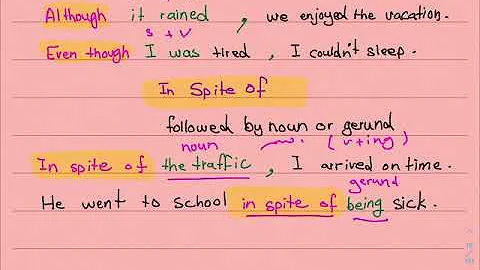 Although it rained, we enjoyed the vacation.
s + v
Even though I was tired, I couldn't sleep.
In Spite of
followed by noun or gerund
noun (v+ing)
In spite of the traffic, I arrived on time.
gerund
He went to school in spite of being sick.